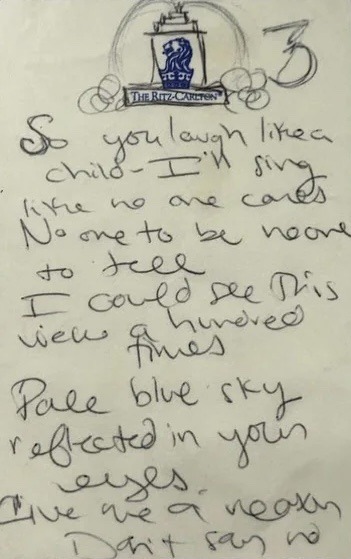 3
THE RITZ-CARLTON
So you laugh like a
child - I'll sing
like no one cares
No one to be no one
to tell
I could see This
view a hundred
times
Pale blue sky
reflected in your
eyes.
Give me a reason
Don't say no